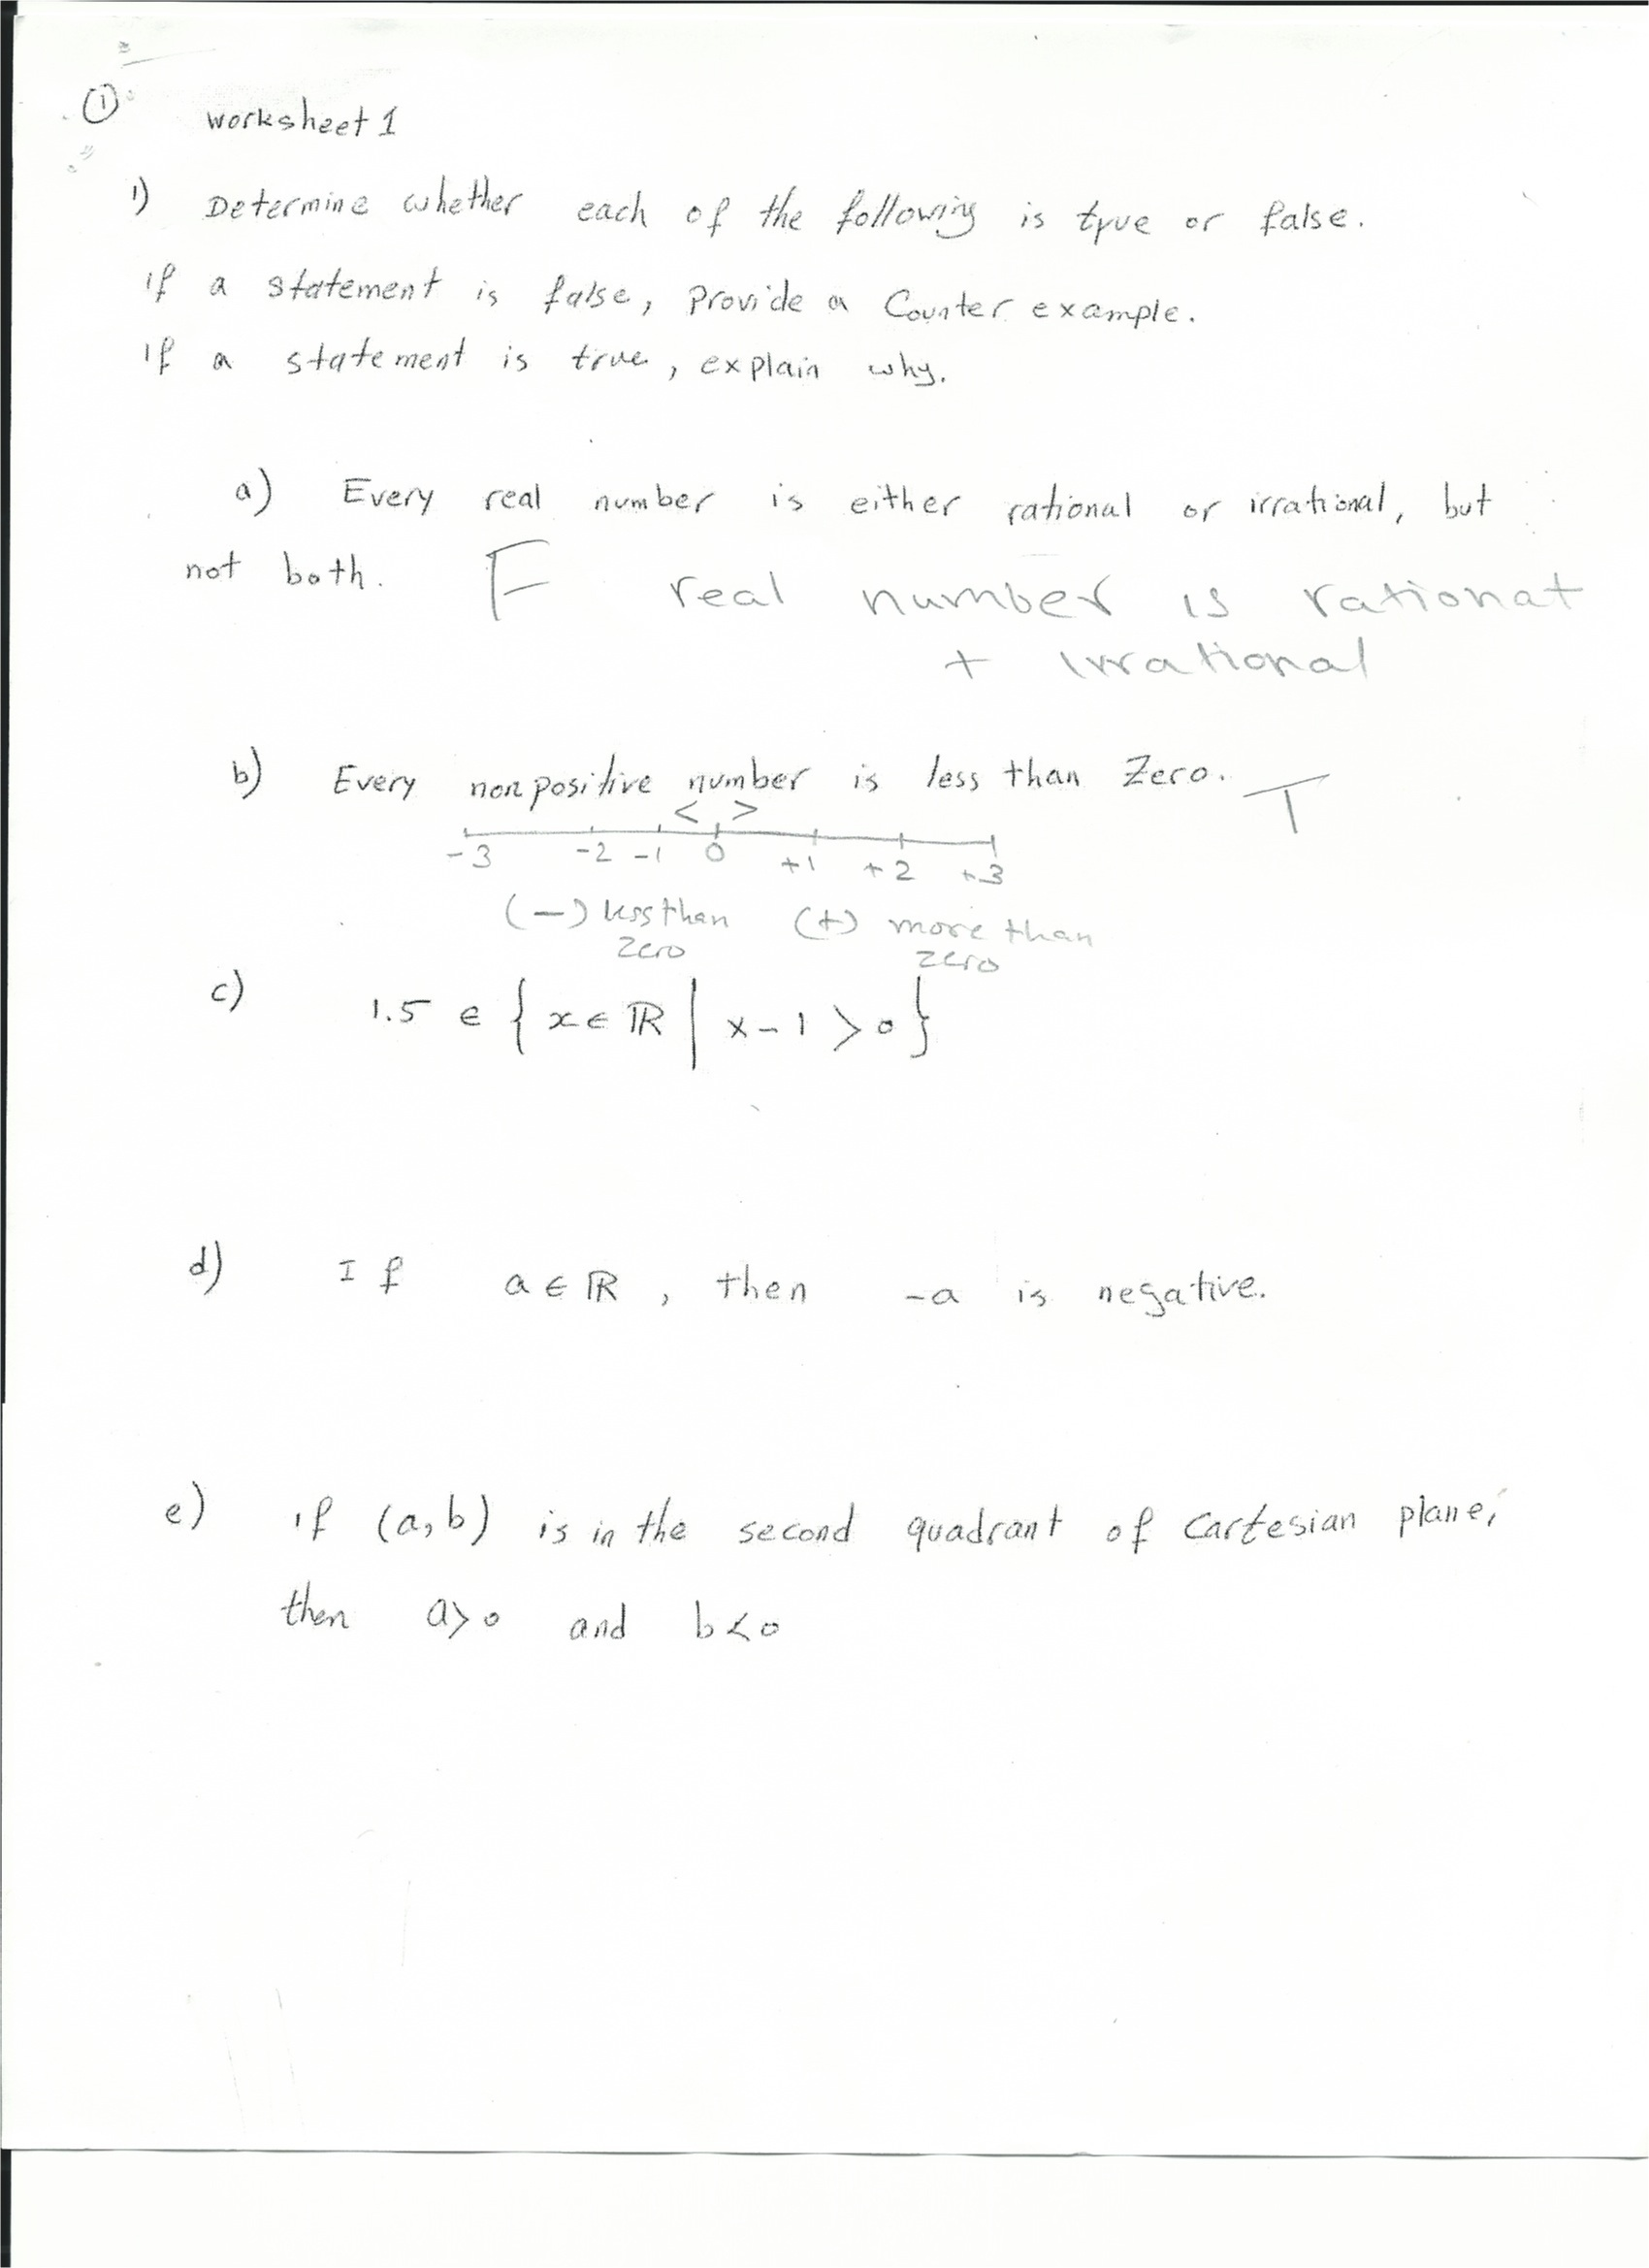 ①
worksheet 1
1) Determine whether each of the following is true or false.
if a statement is false, Provide a Counter example.
If a statement is true, explain why.
a) Every real number is either rational or irrational, but
not both. F real number is rational
+ irrational
b) Every nonpositive number is less than Zero. T
< >
-3 -2 -1 0 +1 +2 +3
(-) less than (+) more than
zero zero
c) 1.5 ∈ { x ∈ ℝ | x - 1 > 0 }
d) If a ∈ ℝ, then -a is negative.
e) if (a,b) is in the second quadrant of Cartesian plane,
then a>0 and b<0